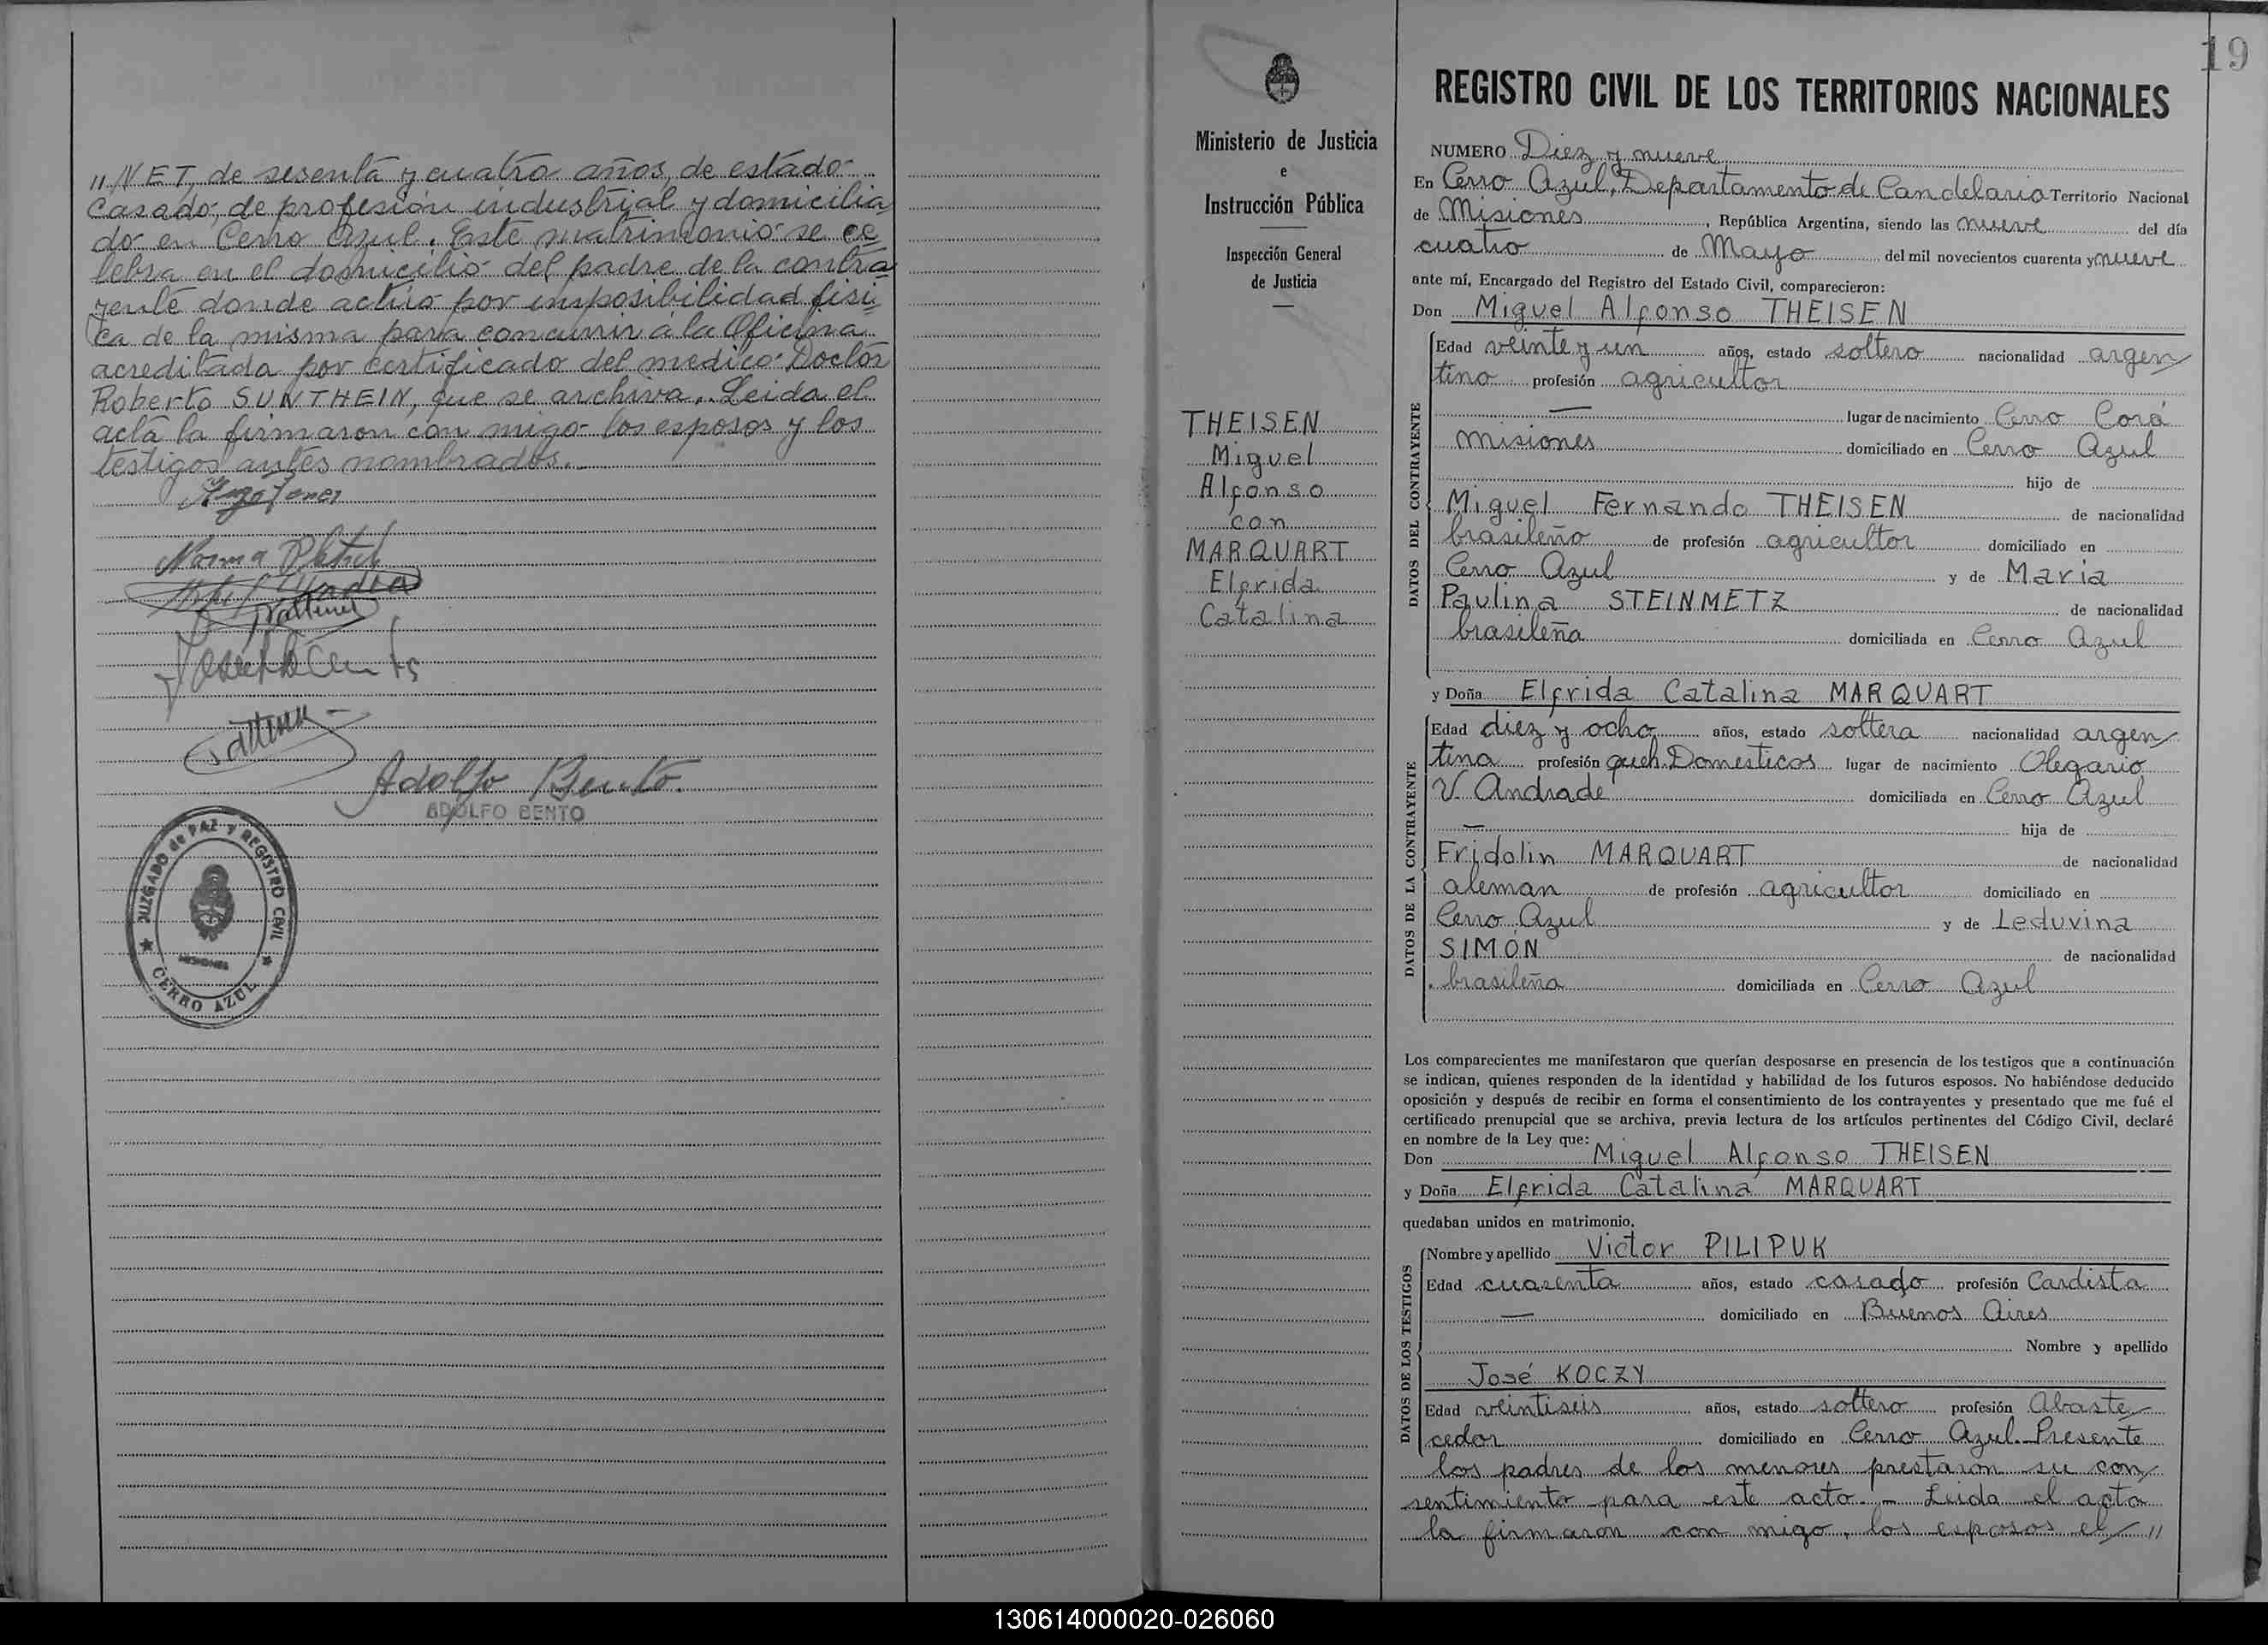 "NET, de sesenta y cuatro años, de estado
casado, de profesión industrial y domicilia
do en Cerro Azul. Este matrimonio se ce
lebra en el domicilio del padre de la contra
yente donde actúo por imposibilidad físi
ca de la misma para concurrir a la Oficina
acreditada por certificado del medico Doctor
Roberto SUNTHEIN, que se archiva. Leida el
acta la firmaron con migo los esposos y los
testigos antes nombrados.
Norma
Adolfo Bento.
ADOLFO BENTO
JUZGADO de PAZ y REGISTRO CIVIL
MISIONES
CERRO AZUL
Ministerio de Justicia
e
Instrucción Pública
Inspección General
de Justicia
THEISEN
Miguel
Alfonso
con
MARQUART
Elfrida
Catalina
19
REGISTRO CIVIL DE LOS TERRITORIOS NACIONALES
NUMERO Diez y nueve
En Cerro Azul, Departamento de Candelaria Territorio Nacional
de Misiones, República Argentina, siendo las nueve del día
cuatro de Mayo del mil novecientos cuarenta y nueve
ante mí, Encargado del Registro del Estado Civil, comparecieron:
Don Miguel Alfonso THEISEN
DATOS DEL CONTRAYENTE
Edad veinte y un años, estado soltero nacionalidad argen
tino profesión agricultor
— lugar de nacimiento Cerro Corá
Misiones domiciliado en Cerro Azul
hijo de
Miguel Fernando THEISEN de nacionalidad
brasileño de profesión agricultor domiciliado en
Cerro Azul y de Maria
Paulina STEINMETZ de nacionalidad
brasileña domiciliada en Cerro Azul
y Doña Elfrida Catalina MARQUART
DATOS DE LA CONTRAYENTE
Edad diez y ocho años, estado soltera nacionalidad argen
tina profesión queh. Domesticos lugar de nacimiento Olegario
V. Andrade domiciliada en Cerro Azul
— hija de
Fridolin MARQUART de nacionalidad
aleman de profesión agricultor domiciliado en
Cerro Azul y de Leduvina
SIMÓN de nacionalidad
brasileña domiciliada en Cerro Azul
Los comparecientes me manifestaron que querían desposarse en presencia de los testigos que a continuación
se indican, quienes responden de la identidad y habilidad de los futuros esposos. No habiéndose deducido
oposición y después de recibir en forma el consentimiento de los contrayentes y presentado que me fué el
certificado prenupcial que se archiva, previa lectura de los artículos pertinentes del Código Civil, declaré
en nombre de la Ley que:
Don Miguel Alfonso THEISEN
y Doña Elfrida Catalina MARQUART
quedaban unidos en matrimonio.
DATOS DE LOS TESTIGOS
Nombre y apellido Victor PILIPUK
Edad cuarenta años, estado casado profesión Cardista
— domiciliado en Buenos Aires
Nombre y apellido
José KOCZY
Edad veintiseis años, estado soltero profesión Abaste
cedor domiciliado en Cerro Azul. Presente
los padres de los menores prestaron su con
sentimiento para este acto. - Leida el acta
la firmaron con migo, los esposos el "
130614000020-026060